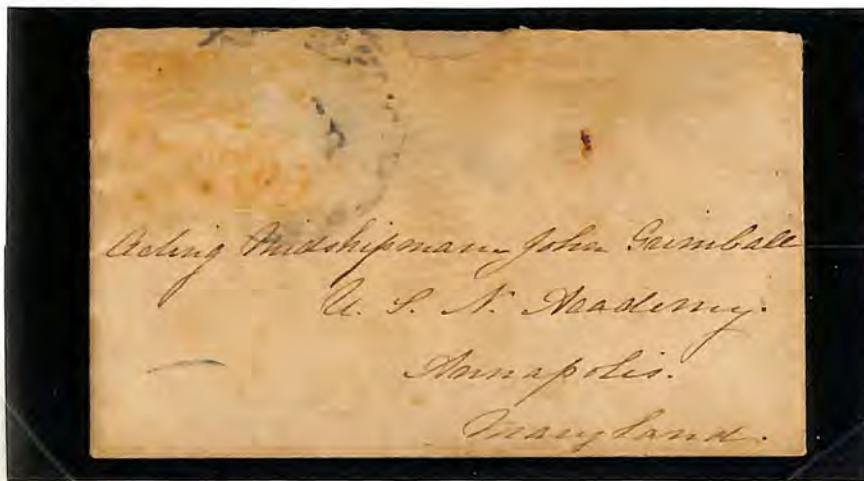 Acting Midshipman John Grimball
U. S. N. Academy.
Annapolis.
Maryland.